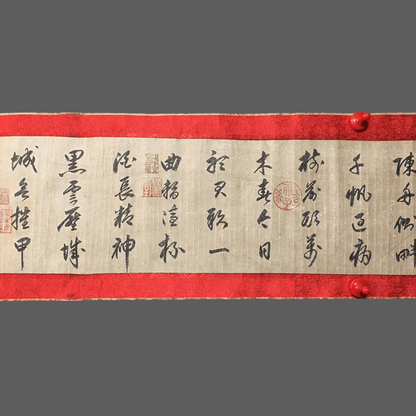 沉舟側畔
千帆過病
樹前頭萬
木春今日
聽君歌一
曲暫憑杯
酒長精神
黑雲壓城
城欲摧甲